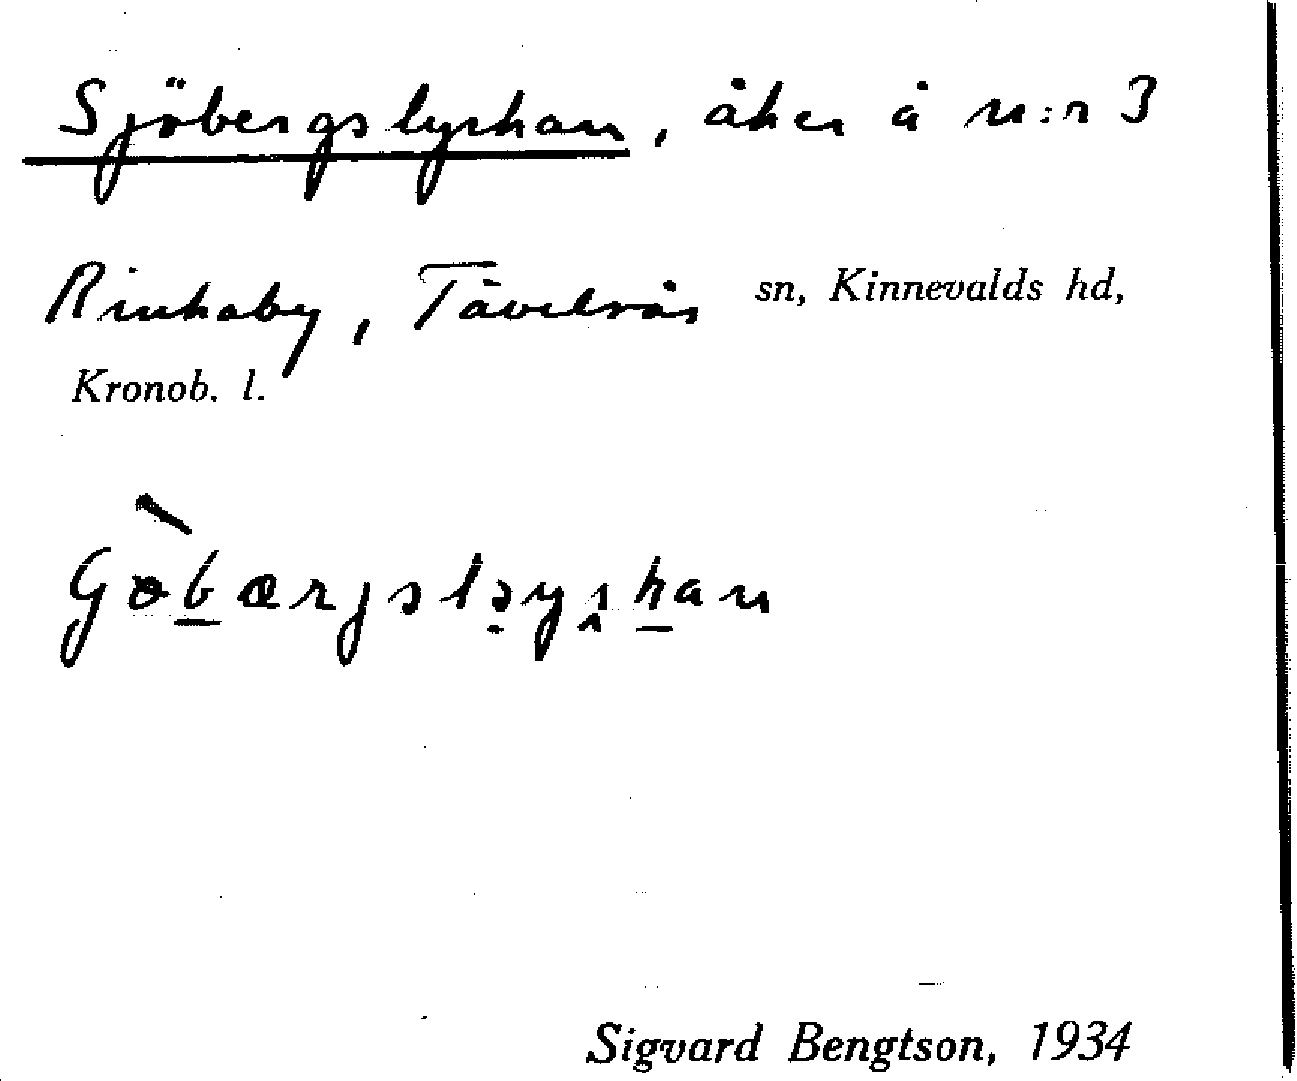 Sjöbergslyckan, åker å n:r 3
Rinkaby, Tävelsås sn, Kinnevalds hd,
Kronob. l.
Sigvard Bengtson, 1934